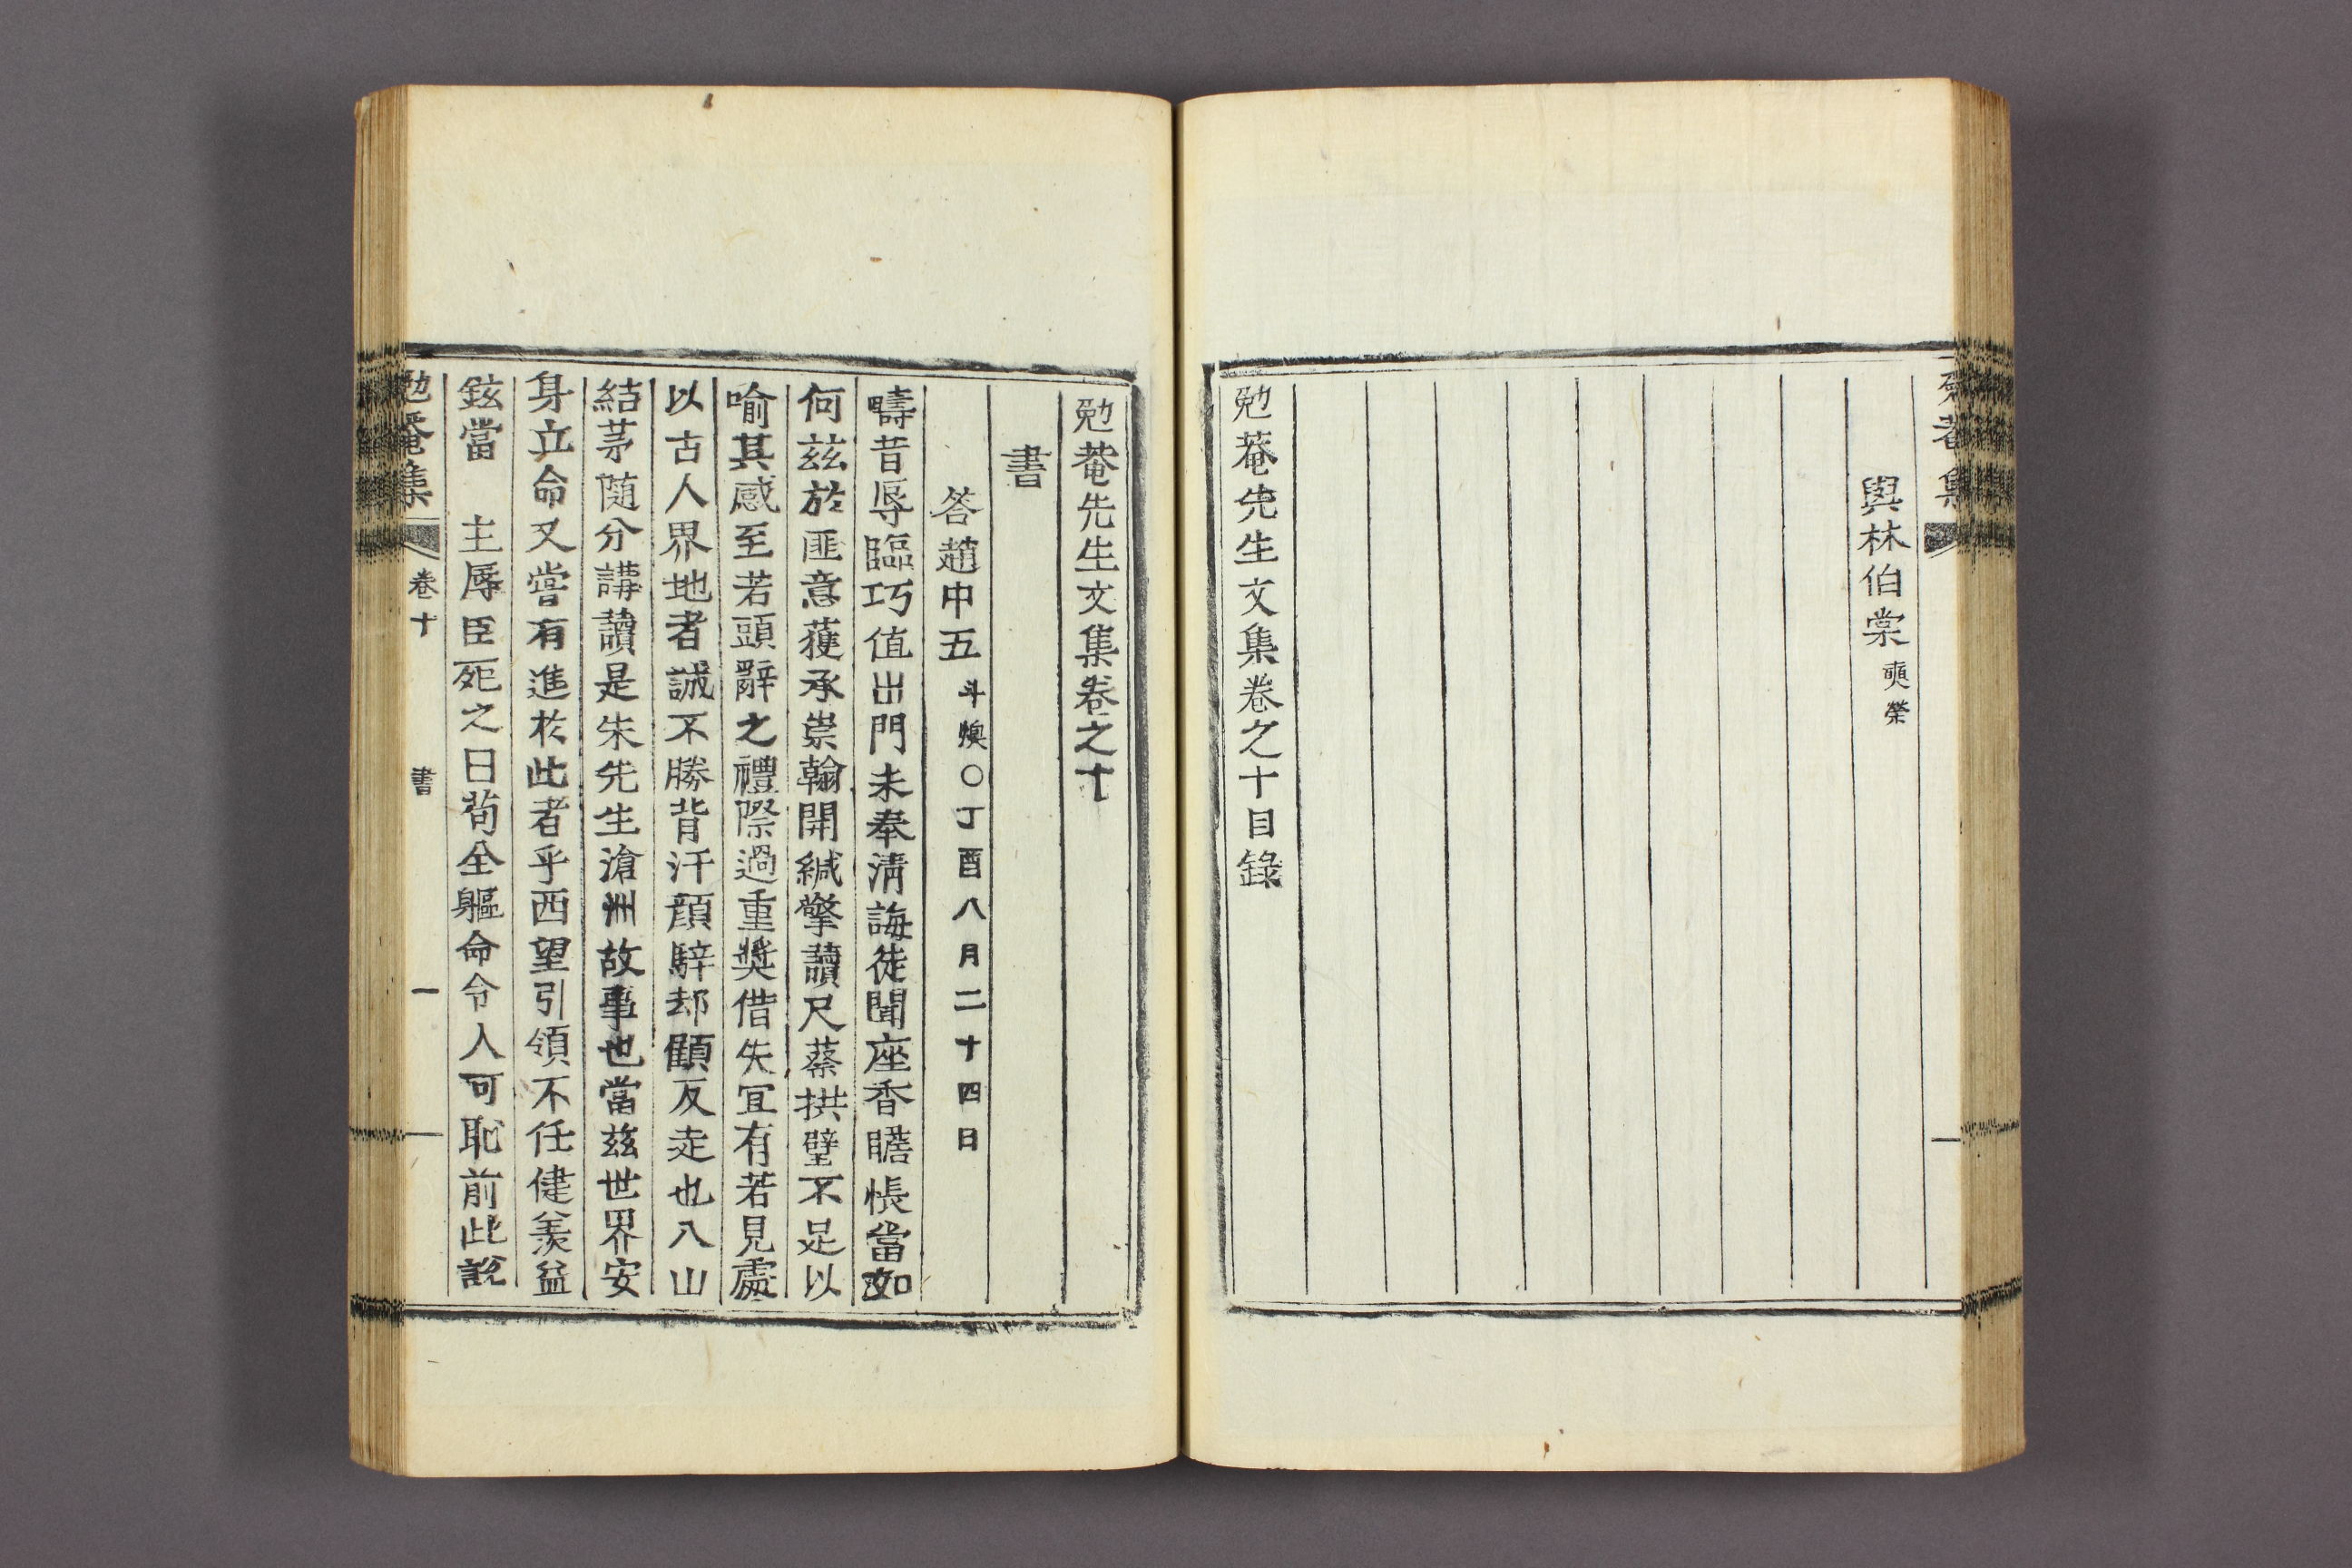 與林伯棠奭榮
勉菴先生文集卷之十目錄
勉菴先生文集卷之十
書
答趙中五斗煥○丁酉八月二十四日
疇昔辱臨巧值出門未奉淸誨徒聞座香瞻悵當如
何玆於匪意獲承崇翰開緘擎讀尺蔡拱璧不足以
喩其感至若頭辭之禮際過重獎借失宜有若見處
以古人界地者誠不勝背汗顔騂却顧反走也入山
結茅隨分講讀是朱先生滄洲故事也當玆世界安
身立命又嘗有進於此者乎西望引領不任健羨益
鉉當　主辱臣死之日苟全軀命令人可恥前此說
勉菴集　卷十　書　一